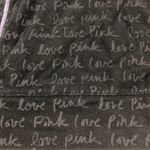 love Pink love Pink
Pink love Pink love
love Pink love Pink
Pink love Pink love
love Pink love Pink
Pink love Pink love
Pink love Pink love